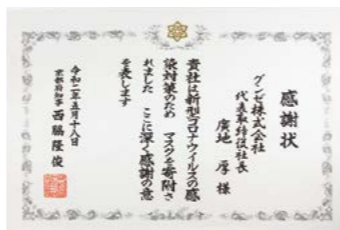 感謝状
グンゼ株式会社
代表取締役社長
廣地 厚 様
貴社は新型コロナウイルスの感
染対策のため マスクを寄附さ
れました ここに深く感謝の意
を表します
令和二年五月十八日
京都府知事 西脇隆俊